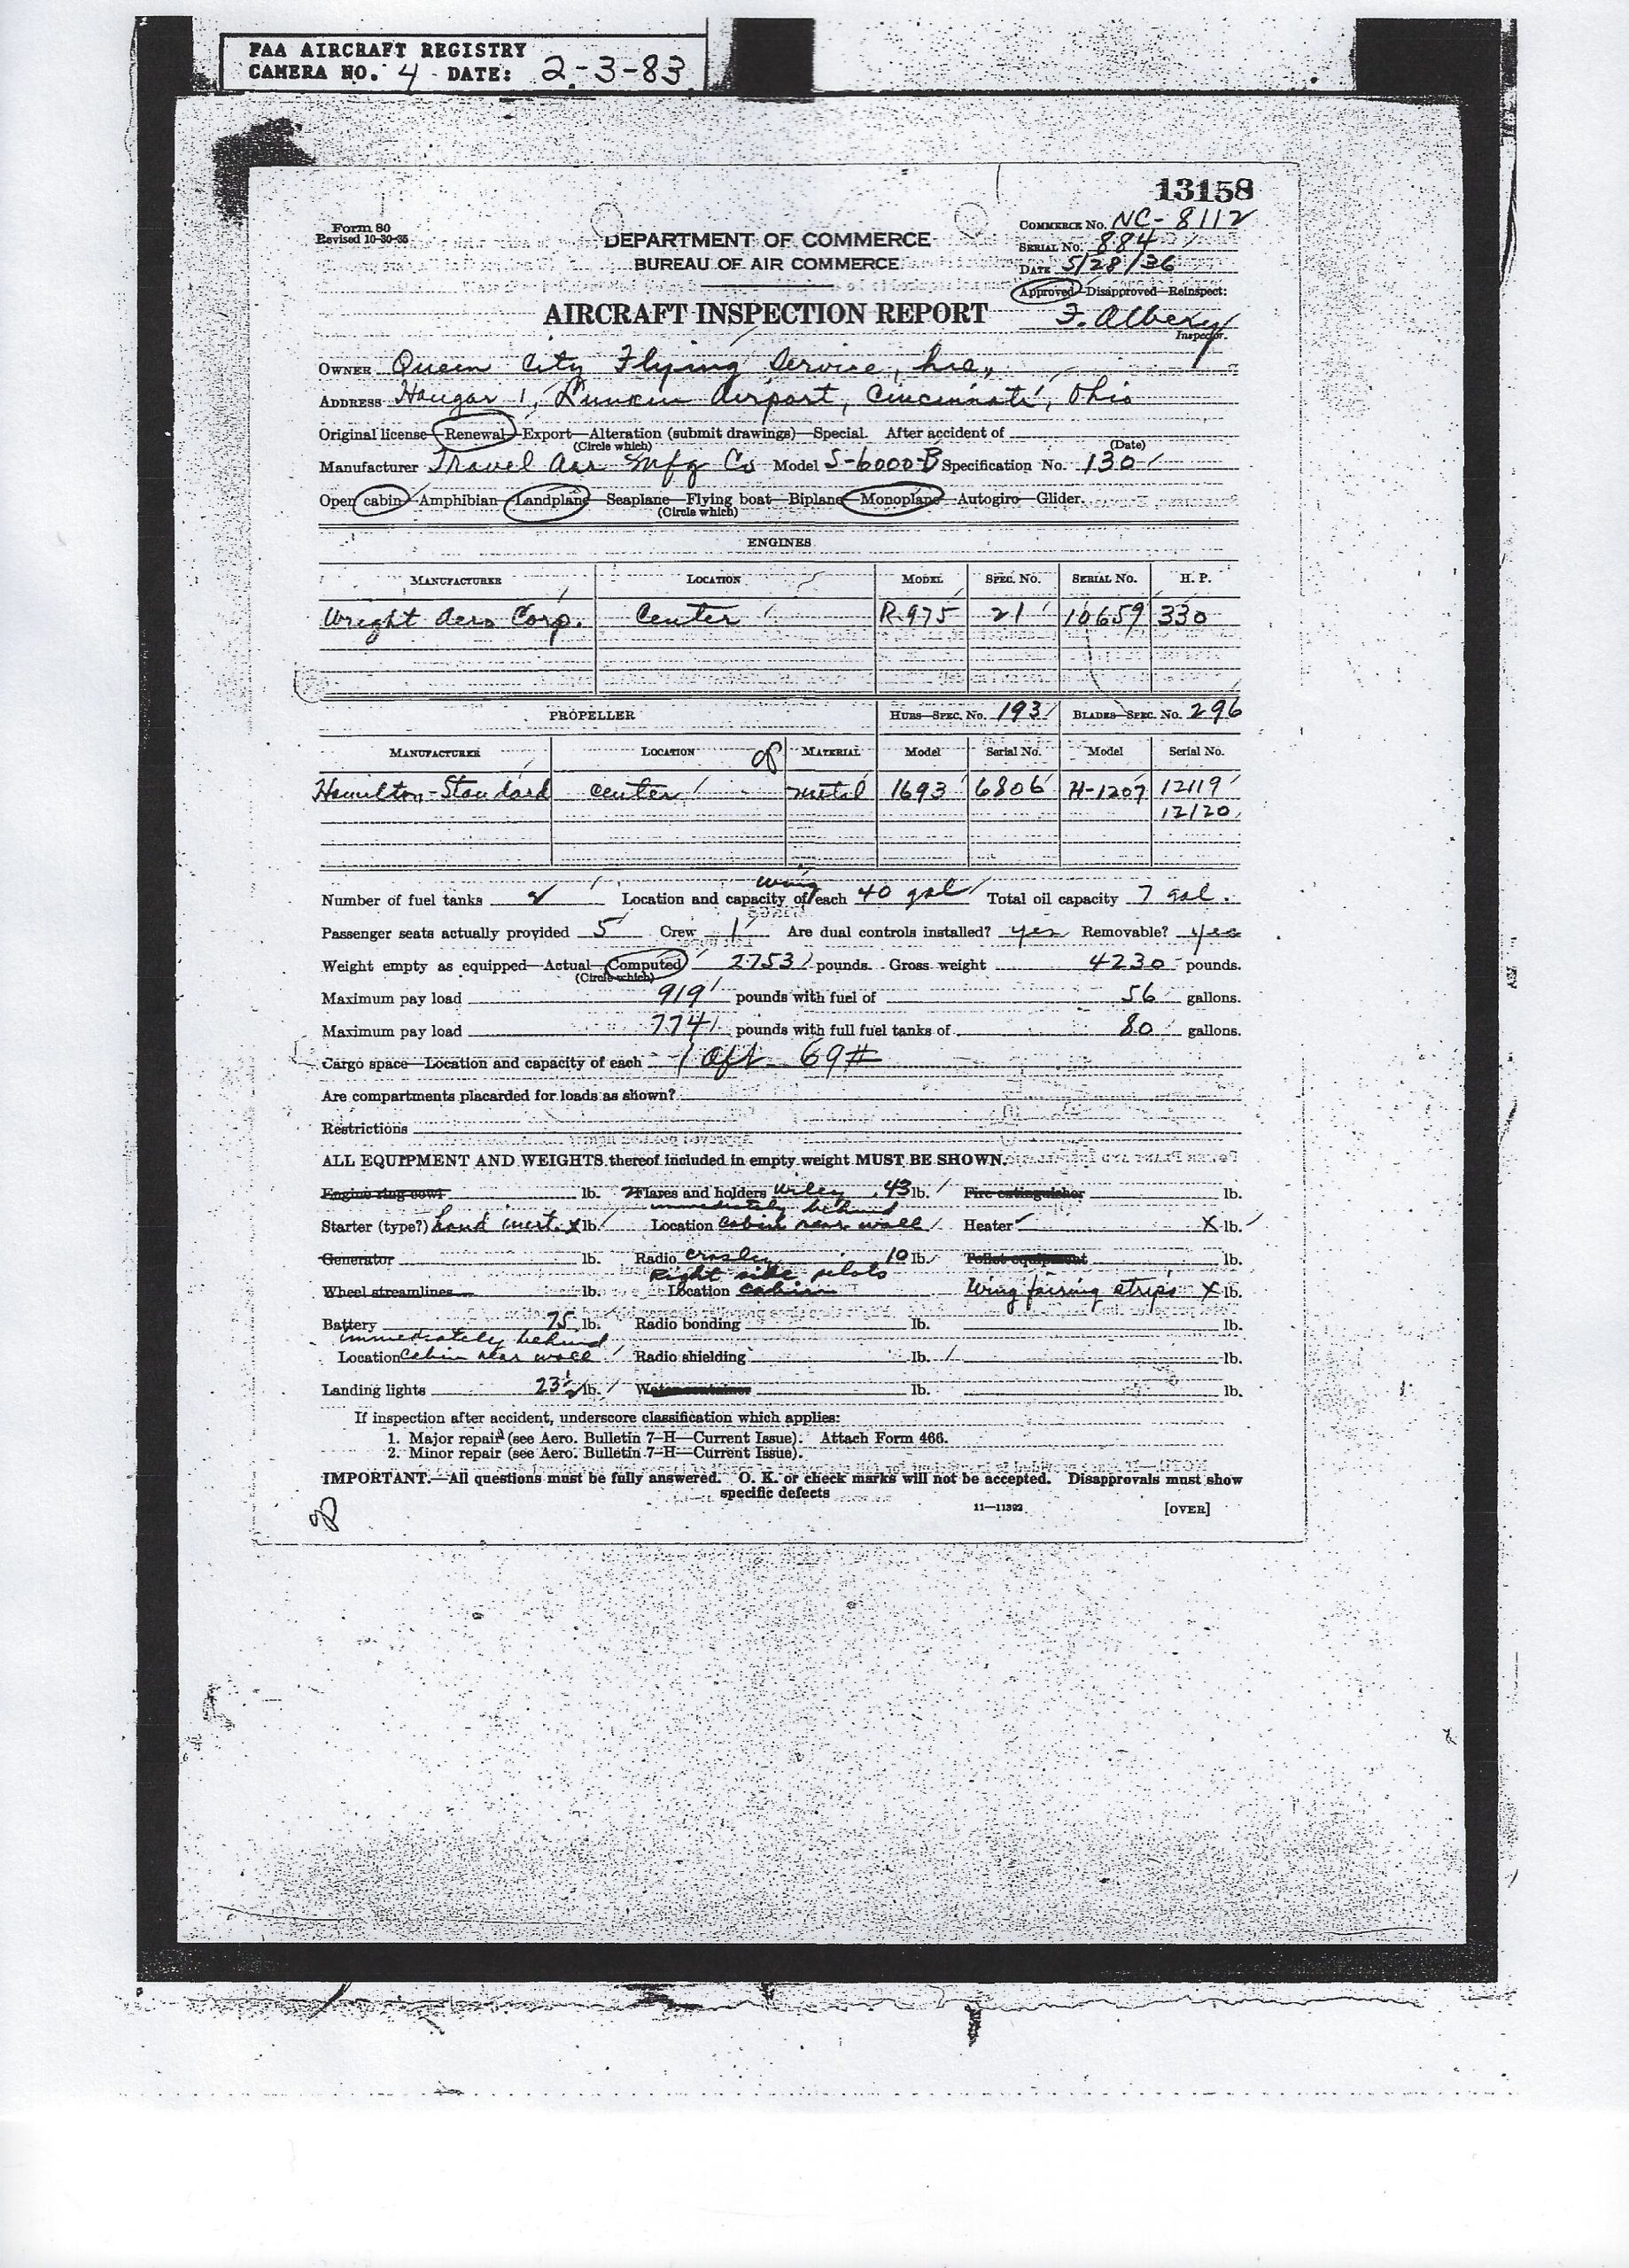 FAA AIRCRAFT REGISTRY
CAMERA NO. 4 DATE: 2-3-83
13158
Form 80
Revised 10-30-35
DEPARTMENT OF COMMERCE
BUREAU OF AIR COMMERCE
AIRCRAFT INSPECTION REPORT
COMMERCE No. NC-8112
SERIAL No. 884
DATE 5/28/36
Approved—Disapproved—Reinspect:
Inspector.
OWNER Queen City Flying Service, Inc.,
ADDRESS Hangar 1, Lunken Airport, Cincinnati, Ohio
Original license—Renewal—Export—Alteration (submit drawings)—Special. After accident of
(Circle which) (Date)
Manufacturer Travel Air Mfg Co Model S-6000-B Specification No. 130
Open cabin—Amphibian—Landplane—Seaplane—Flying boat—Biplane—Monoplane—Autogiro—Glider.
(Circle which)
ENGINES
MANUFACTURER LOCATION MODEL SPEC. NO. SERIAL NO. H. P.
Wright Aero Corp. Center R-975 21 10659 330
PROPELLER HUBS—SPEC. NO. 193 BLADES—SPEC. NO. 296
MANUFACTURER LOCATION MATERIAL Model Serial No. Model Serial No.
Hamilton-Standard center metal 1693 6806 H-1207 12119
12120
Number of fuel tanks 2 Location and capacity of each wing 40 gal Total oil capacity 7 gal.
Passenger seats actually provided 5 Crew 1 Are dual controls installed? yes Removable? yes
Weight empty as equipped—Actual—Computed 2753 pounds. Gross weight 4230 pounds.
(Circle which)
Maximum pay load 919 pounds with fuel of 56 gallons.
Maximum pay load 774 pounds with full fuel tanks of 80 gallons.
Cargo space—Location and capacity of each 1 aft - 69#
Are compartments placarded for loads as shown?
Restrictions
ALL EQUIPMENT AND WEIGHTS thereof included in empty weight MUST BE SHOWN.
Engine ring cowl lb. 2 Flares and holders Wiley 43 lb. Fire extinguisher lb.
immediately behind
Starter (type?) hand inert. X lb. Location cabin rear wall Heater X lb.
Generator lb. Radio Crosley 10 lb. Toilet equipment lb.
Right side pilots
Wheel streamlines lb. Location cabin Wing fairing strips X lb.
Battery 75 lb. Radio bonding lb. lb.
immediately behind
Location cabin rear wall Radio shielding lb. lb.
Landing lights 23½ lb. Water container lb. lb.
If inspection after accident, underscore classification which applies:
1. Major repair (see Aero. Bulletin 7-H—Current Issue). Attach Form 466.
2. Minor repair (see Aero. Bulletin 7-H—Current Issue).
IMPORTANT.—All questions must be fully answered. O. K. or check marks will not be accepted. Disapprovals must show
specific defects
11—11392 [OVER]